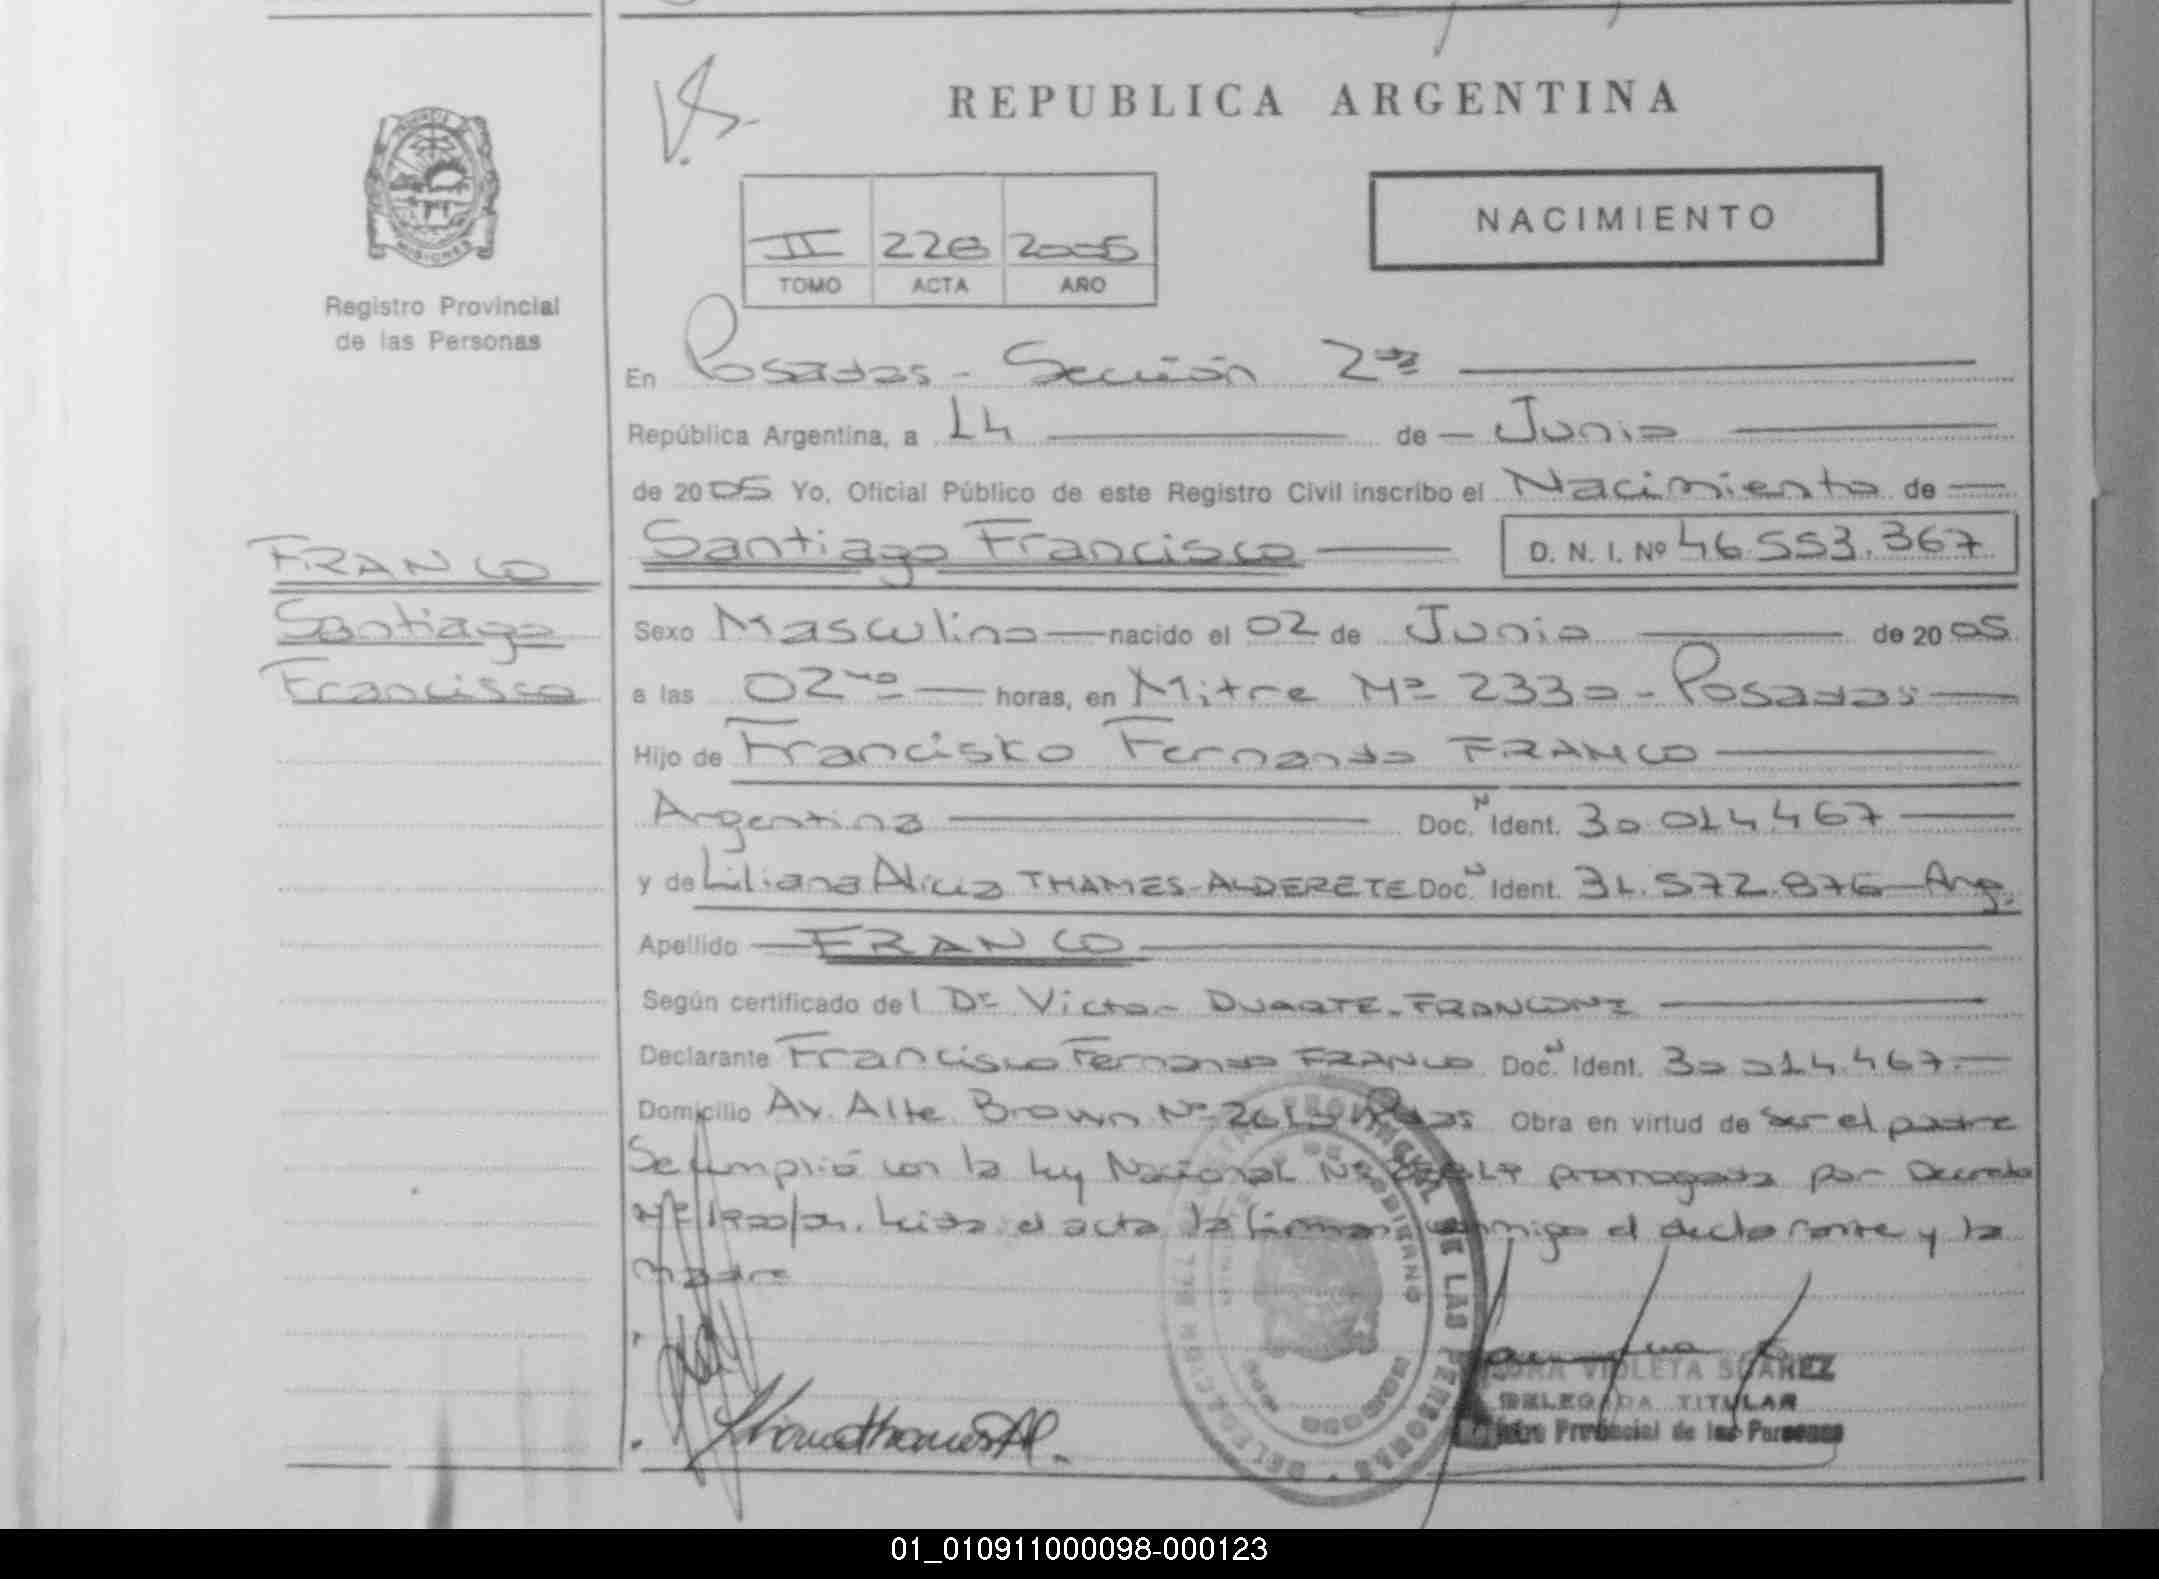 REPUBLICA ARGENTINA
PROVINCIA DE
MISIONES
Registro Provincial
de las Personas
NACIMIENTO
II 228 2005
TOMO ACTA AÑO
En Posados - Sección 2da
República Argentina, a 14 de Junio
de 2005 Yo, Oficial Público de este Registro Civil inscribo el Nacimiento de
Santiago Francisco D. N. I. Nº 46.553.367
FRANCO
Santiago
Francisco
Sexo Masculino nacido el 02 de Junio de 2005
a las 02 horas, en Mitre Nº 2330 - Posadas
Hijo de Francisko Fernando FRANCO
Argentina Doc. N Ident. 30.014.467
y de Liliana Alicia THAMES-ALDERETE Doc. N Ident. 31.572.876 Arg.
Apellido FRANCO
Según certificado del Dr Victor DUARTE-FRANCONI
Declarante Francisco Fernando FRANCO Doc. N Ident. 30.014.467
Domicilio Av. Alte. Brown Nº Obra en virtud de ser el padre
Se cumplió con la ley Nacional Nº prorrogada por Decreto
Nº Leida el acta la firman conmigo el declarante y la
madre
REGISTRO PROVINCIAL DE LAS PERSONAS
VIOLETA SUAREZ
DELEGADA TITULAR
Registro Provincial de las Personas
01_010911000098-000123